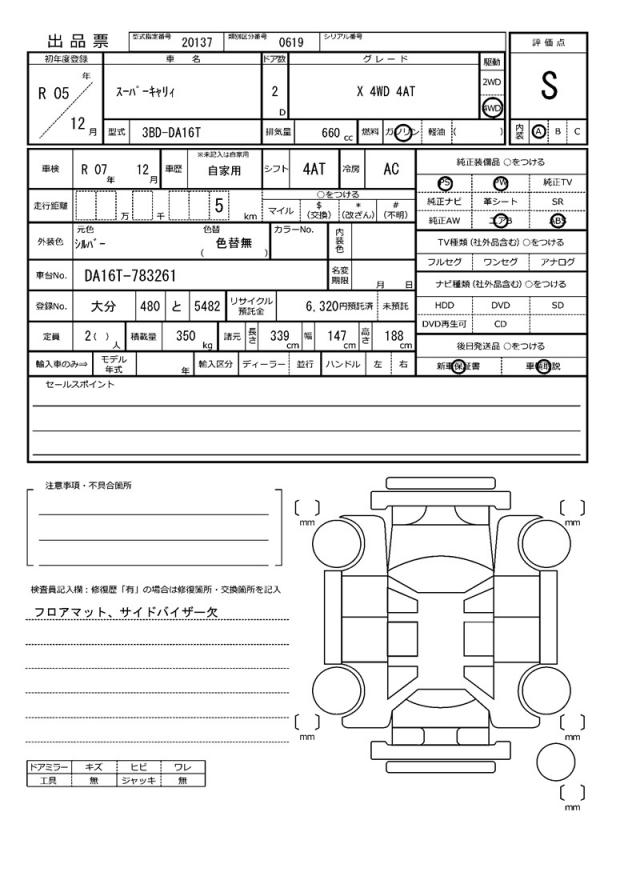 出品票 型式指定番号 20137 類別区分番号 0619 シリアル番号
初年度登録 車名 ドア数 グレード 駆動 評価点
R 05 年 12 月 スーパーキャリィ 2 D X 4WD 4AT 2WD 4WD S
型式 3BD-DA16T 排気量 660 cc 燃料 ガソリン 軽油 ( ) 内装 A B C
車検 R 07 年 12 月 車歴 ※未記入は自家用 自家用 シフト 4AT 冷房 AC
純正装備品 ○をつける
PS PW 純正TV
純正ナビ 革シート SR
純正AW エアB ABS
走行距離 万 千 5 km ○をつける
マイル $(交換) *(改ざん) #(不明)
外装色 元色 シルバー 色替 色替無 ( ) カラーNo. 内装色
TV種類(社外品含む)○をつける
フルセグ ワンセグ アナログ
車台No. DA16T-783261 名変期限 月 日
ナビ種類(社外品含む)○をつける
HDD DVD SD
DVD再生可 CD
登録No. 大分 480 と 5482 リサイクル預託金 6,320円預託済 未預託
定員 2( ) 人 積載量 350 kg 諸元 長さ 339 cm 幅 147 cm 高さ 188 cm
後日発送品 ○をつける
新車保証書 車輌取説
輸入車のみ⇒ モデル年式 年 輸入区分 ディーラー 並行 ハンドル 左 右
セールスポイント
注意事項・不具合箇所
検査員記入欄：修復歴「有」の場合は修復箇所・交換箇所を記入
フロアマット、サイドバイザー欠
ドアミラー キズ ヒビ ワレ
工具 無 ジャッキ 無
〔 〕 mm
〔 〕 mm
〔 〕 mm
〔 〕 mm
〔 〕 mm